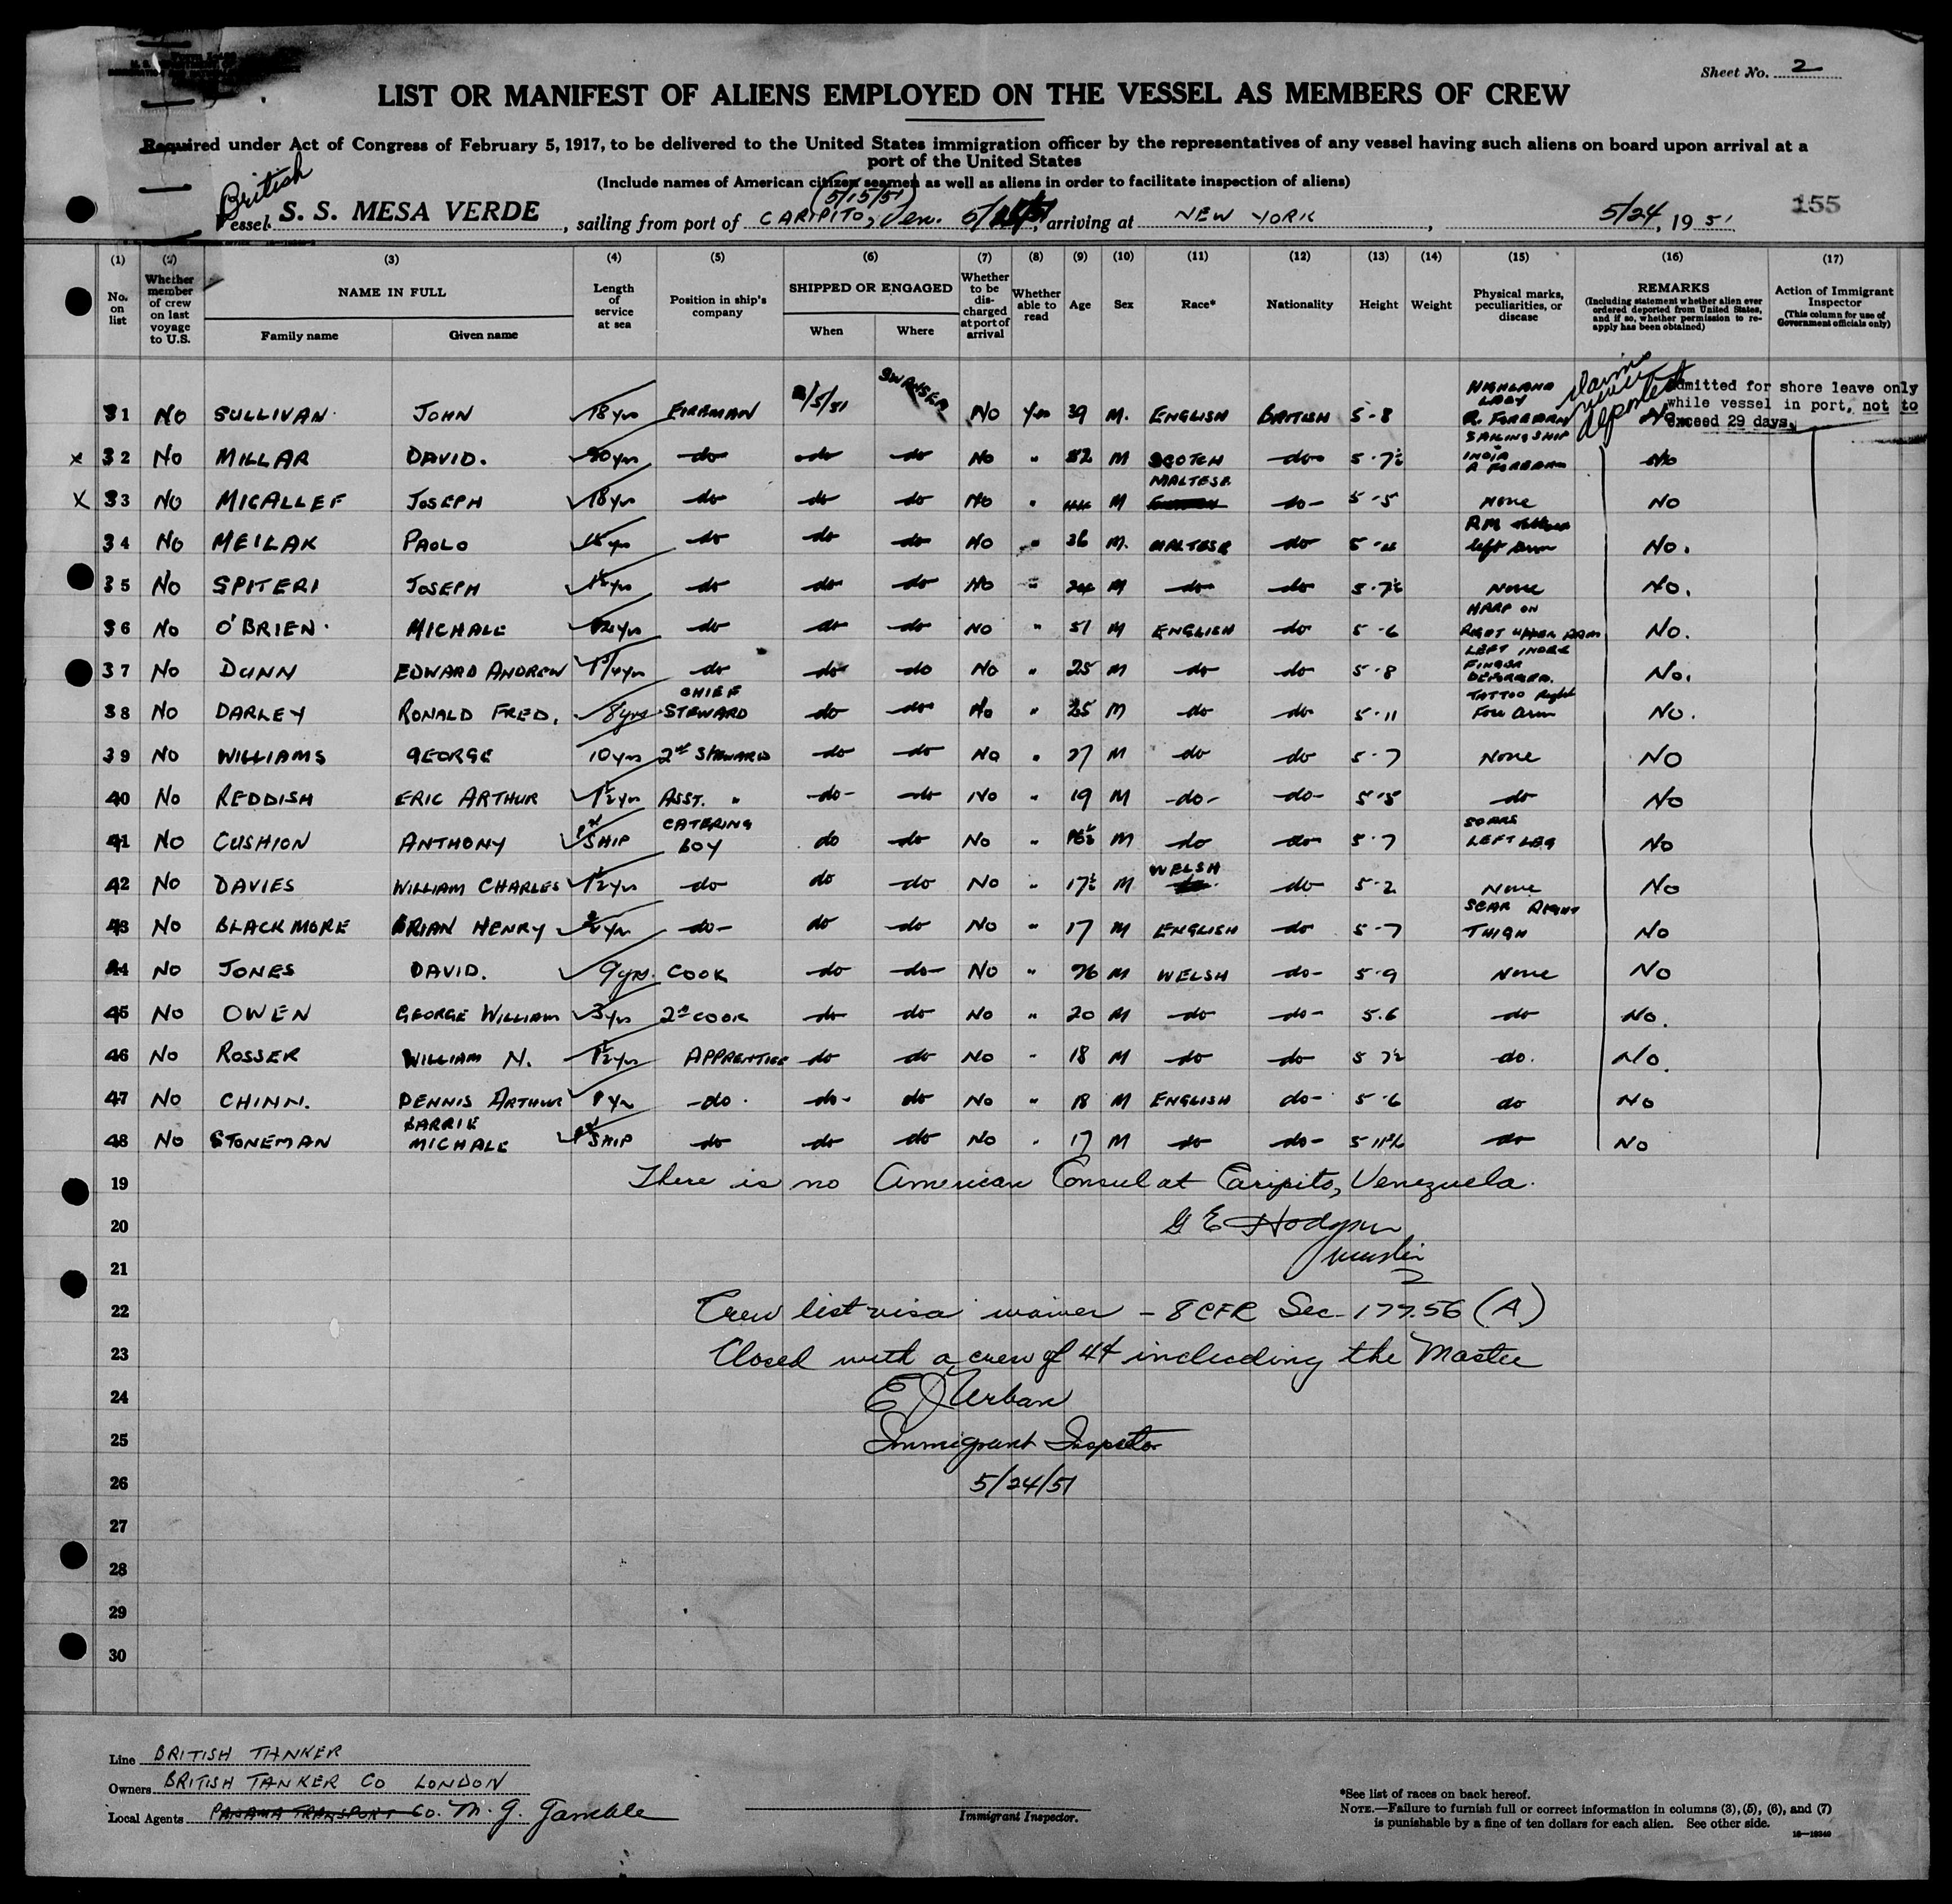 Sheet No. 2
LIST OR MANIFEST OF ALIENS EMPLOYED ON THE VESSEL AS MEMBERS OF CREW
Required under Act of Congress of February 5, 1917, to be delivered to the United States immigration officer by the representatives of any vessel having such aliens on board upon arrival at a
port of the United States
(Include names of American citizen seamen as well as aliens in order to facilitate inspection of aliens)
British
(5/15/51)
Vessel S. S. MESA VERDE, sailing from port of CARIPITO, Ven., arriving at NEW YORK, 5/24, 1951
155
(1) (2) (3) (4) (5) (6) (7) (8) (9) (10) (11) (12) (13) (14) (15) (16) (17)
No. on list
Whether member of crew on last voyage to U.S.
NAME IN FULL
Family name Given name
Length of service at sea
Position in ship's company
SHIPPED OR ENGAGED
When Where
Whether to be discharged at port of arrival
Whether able to read
Age
Sex
Race*
Nationality
Height
Weight
Physical marks, peculiarities, or disease
REMARKS
(Including statement whether alien ever ordered deported from United States, and if so, whether permission to re-apply has been obtained)
Action of Immigrant Inspector
(This column for use of Government officials only)
Claims never deported
Admitted for shore leave only
while vessel in port, not to
exceed 29 days.
31 No SULLIVAN JOHN 18 yrs FIREMAN /5/51 SWANSEA No Yes 39 M. ENGLISH BRITISH 5-8 HIGHLAND LADY R. FOREARM No
x 32 No MILLAR DAVID. yrs do do do No " 52 M SCOTCH do 5-7½ SAILING SHIP INDIA R FOREARM No
x 33 No MICALLEF JOSEPH 18 yrs do do do No " 44 M MALTESE do 5-5 NONE No
34 No MEILAK PAOLO yrs do do do No " 36 M. MALTESE do 5-4 left arm No.
35 No SPITERI JOSEPH yrs do do do No " 24 M do do 5-7½ None No.
36 No O'BRIEN MICHALE yrs do do do No " 51 M ENGLISH do 5-6 HARP ON RIGHT UPPER ARM No.
37 No DUNN EDWARD ANDREW yrs do do do No " 25 M do do 5-8 LEFT INDEX FINGER DEFORMED. No.
38 No DARLEY RONALD FRED. 8 yrs CHIEF STEWARD do do No " 25 M do do 5-11 TATTOO Right Fore Arm No.
39 No WILLIAMS GEORGE 10 yrs 2nd STEWARD do do No " 27 M do do 5-7 None No
40 No REDDISH ERIC ARTHUR 1½ yrs ASST. " do do No " 19 M do do 5-5 do No
41 No CUSHION ANTHONY 1st SHIP CATERING BOY do do No " 16½ M do do 5-7 SCARS LEFT LEG No
42 No DAVIES WILLIAM CHARLES 1½ yrs do do do No " 17½ M WELSH do 5-2 None No
43 No BLACKMORE BRIAN HENRY yrs do do do No " 17 M ENGLISH do 5-7 SCAR RIGHT THIGH No
44 No JONES DAVID. 9 yrs. COOK do do No " 26 M WELSH do 5-9 None No
45 No OWEN GEORGE WILLIAM 3 yrs 2nd COOK do do No " 20 M do do 5.6 do No.
46 No ROSSER WILLIAM N. 1½ yrs APPRENTICE do do No " 18 M do do 5 7½ do. No.
47 No CHINN. DENNIS ARTHUR 1 yr do do do No " 18 M ENGLISH do 5-6 do No
48 No STONEMAN BARRIE MICHALE 1st SHIP do do do No " 17 M do do 5 11½ do No
19 There is no American Consul at Caripito, Venezuela.
20 G E Hodgson
21
22 Crew list visa waiver - 8 CFR Sec 177.56 (A)
23 Closed with a crew of 44 including the Master
24 E J Urban
25 Immigrant Inspector
26 5/24/51
27
28
29
30
Line BRITISH TANKER
Owners BRITISH TANKER CO LONDON
Local Agents PANAMA TRANSPORT CO. M. G. Gamble
Immigrant Inspector.
*See list of races on back hereof.
NOTE.—Failure to furnish full or correct information in columns (3), (5), (6), and (7)
is punishable by a fine of ten dollars for each alien. See other side.
16—19240